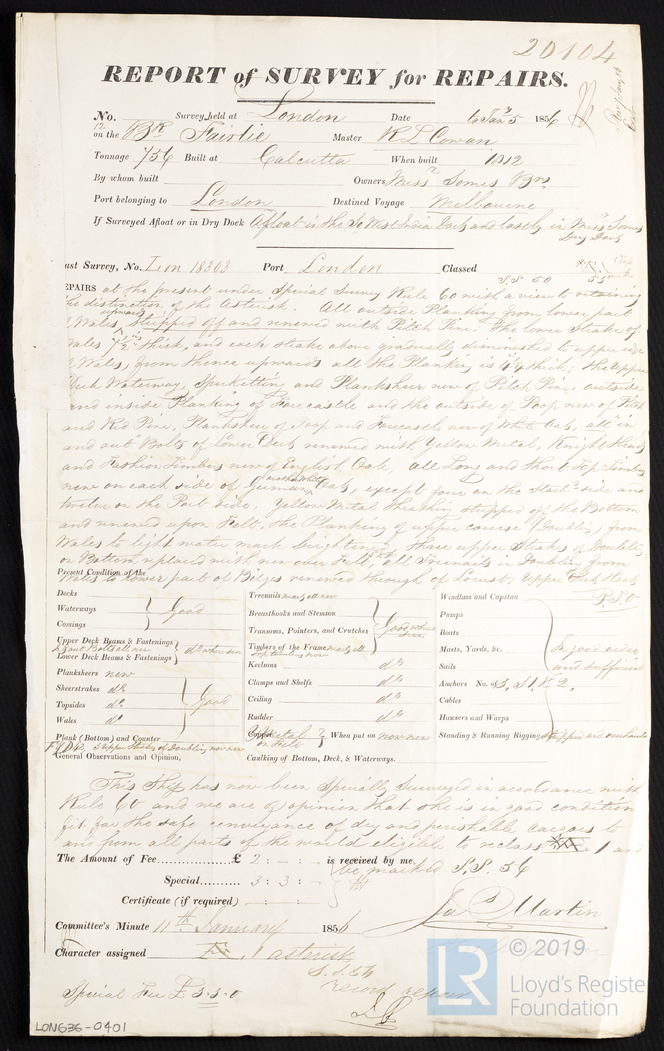 20104
REPORT of SURVEY for REPAIRS.
No. Survey held at London Date 1856
on the Bk Fairlie Master R L Cowan
Tonnage 756 Built at Calcutta When built 1812
By whom built Owners Messrs Somes Brs
Port belonging to London Destined Voyage Melbourne
If Surveyed Afloat or in Dry Dock Afloat in the So West India Dock and lastly in Messrs Somes
Dry Dock
ast Survey, No. Lon 18303 Port London Classed
S.S. 50
EPAIRS at the present under Special Survey Rule 60 with a view to retaining
the distinction of the Asterisk. All outside Planking from lower part
Wales upwards stripped off and renewed with Pitch Pine. The lower Strake of
Wales 7½ ins thick, and each strake above gradually diminished to upper edge
Wales, from thence upwards all the Planking is thick; the upper
Deck Waterway, Spirketting and Planksheer new of Pitch Pine, outside
and inside Planking of Forecastle and the outside of Poop new of
and Red Pine, Planksheer of Poop and Forecastle new of White Oak, all in
and out Bolts of Lower Deck renewed with Yellow Metal, Knight Heads
and Fashion Timbers new of English Oak, All Long and Short Top Timbers
new on each side of German Oak, except four on the Starbd side and
twelve on the Port side, Yellow Metal Sheathing stripped off the Bottom
and renewed upon Felt. the Planking of upper course (Doubling) from
Wales to light water mark brightened, three upper Strakes of Doubling
on Bottom replaced with new over Felt, all Treenails in Doubling from
Wales to lower part of Bilges renewed through of Locust. Upper Deck
P.T.O.
Present Condition of the
Decks
Waterways
Comings
Good
Upper Deck Beams & Fastenings
Lower Deck Beams & Fastenings
do where seen
Planksheers new
Sheerstrakes do
Topsides do
Wales do
Good
Plank (Bottom) and Counter
3 upper Strakes of Doubling now new
General Observations and Opinion,
Treenails mostly all new
Breasthooks and Stemson
Transoms, Pointers, and Crutches
Timbers of the Frame mostly all
Top timbers new
Good where seen
Keelsons do
Clamps and Shelfs do
Ceiling do
Rudder do
Copper Y Metal on Felt When put on now new
Caulking of Bottom, Deck, & Waterways.
Windlass and Capstan
Pumps
Boats
Masts, Yards, &c.
Sails
In good order and sufficient
Anchors No. 3, S1, K2.
Cables
Hawsers and Warps
Standing & Running Rigging stripped and overhauled
This Ship has now been Specially Surveyed in accordance with
Rule 60 and we are of opinion that she is in good condition
fit for the safe conveyance of dry and perishable cargoes to
and from all parts of the world eligible to reclass 1 and
The Amount of Fee £ 2 : - : - is received by me,
be marked S.S. 56
Special 3 : 3 : -
Certificate (if required)
Jas Martin
Committee's Minute 11th January 1856
Character assigned 1 asterisk
S.S. 56
record repairs
Special Fee £ 3-3-0
LON636-0401
LR © 2019
Lloyd's Registe
Foundation